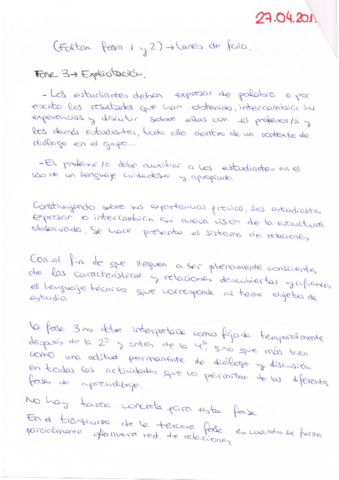 27.04.201
(Faltan fase 1 y 2) → Lunes de feria.
Fase 3 → Explicitación.
- Los estudiantes deben expresar de palabra o por
escrito los resultados que han obtenido, intercambiar sus
experiencias y discutir sobre ellas con el profesor/a y
los demás estudiantes, todo ello dentro de un contexto de
diálogo en el grupo...
- El profesor/a debe auxiliar a los estudiantes en el
uso de un lenguaje cuidadoso y apropiado.
Construyendo sobre sus experiencias previas, los estudiantes
expresan o intercambian su nueva visión de la estructura
observada. Se hace presente el sistema de relaciones
Con el fin de que lleguen a ser plenamente conscientes
de las características y relaciones descubiertas y afiancen
el lenguaje técnico que corresponde al tema objetos de
estudio.
La fase 3 no debe interpretarse como fijada temporalmente
después de la 2ª y antes de la 4ª sino que más bien
como una actitud permanente de diálogo y discusión
en todas las actividades que lo permitan de las diferentes
fases de aprendizaje.
No hay tarea concreta para esta fase
En el transcurso de la tercera fase es cuando se forma
parcialmente la nueva red de relaciones